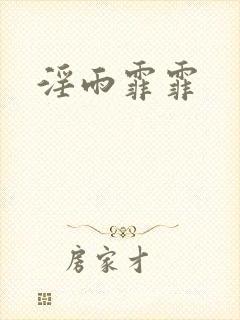 淫雨霏霏
房家才